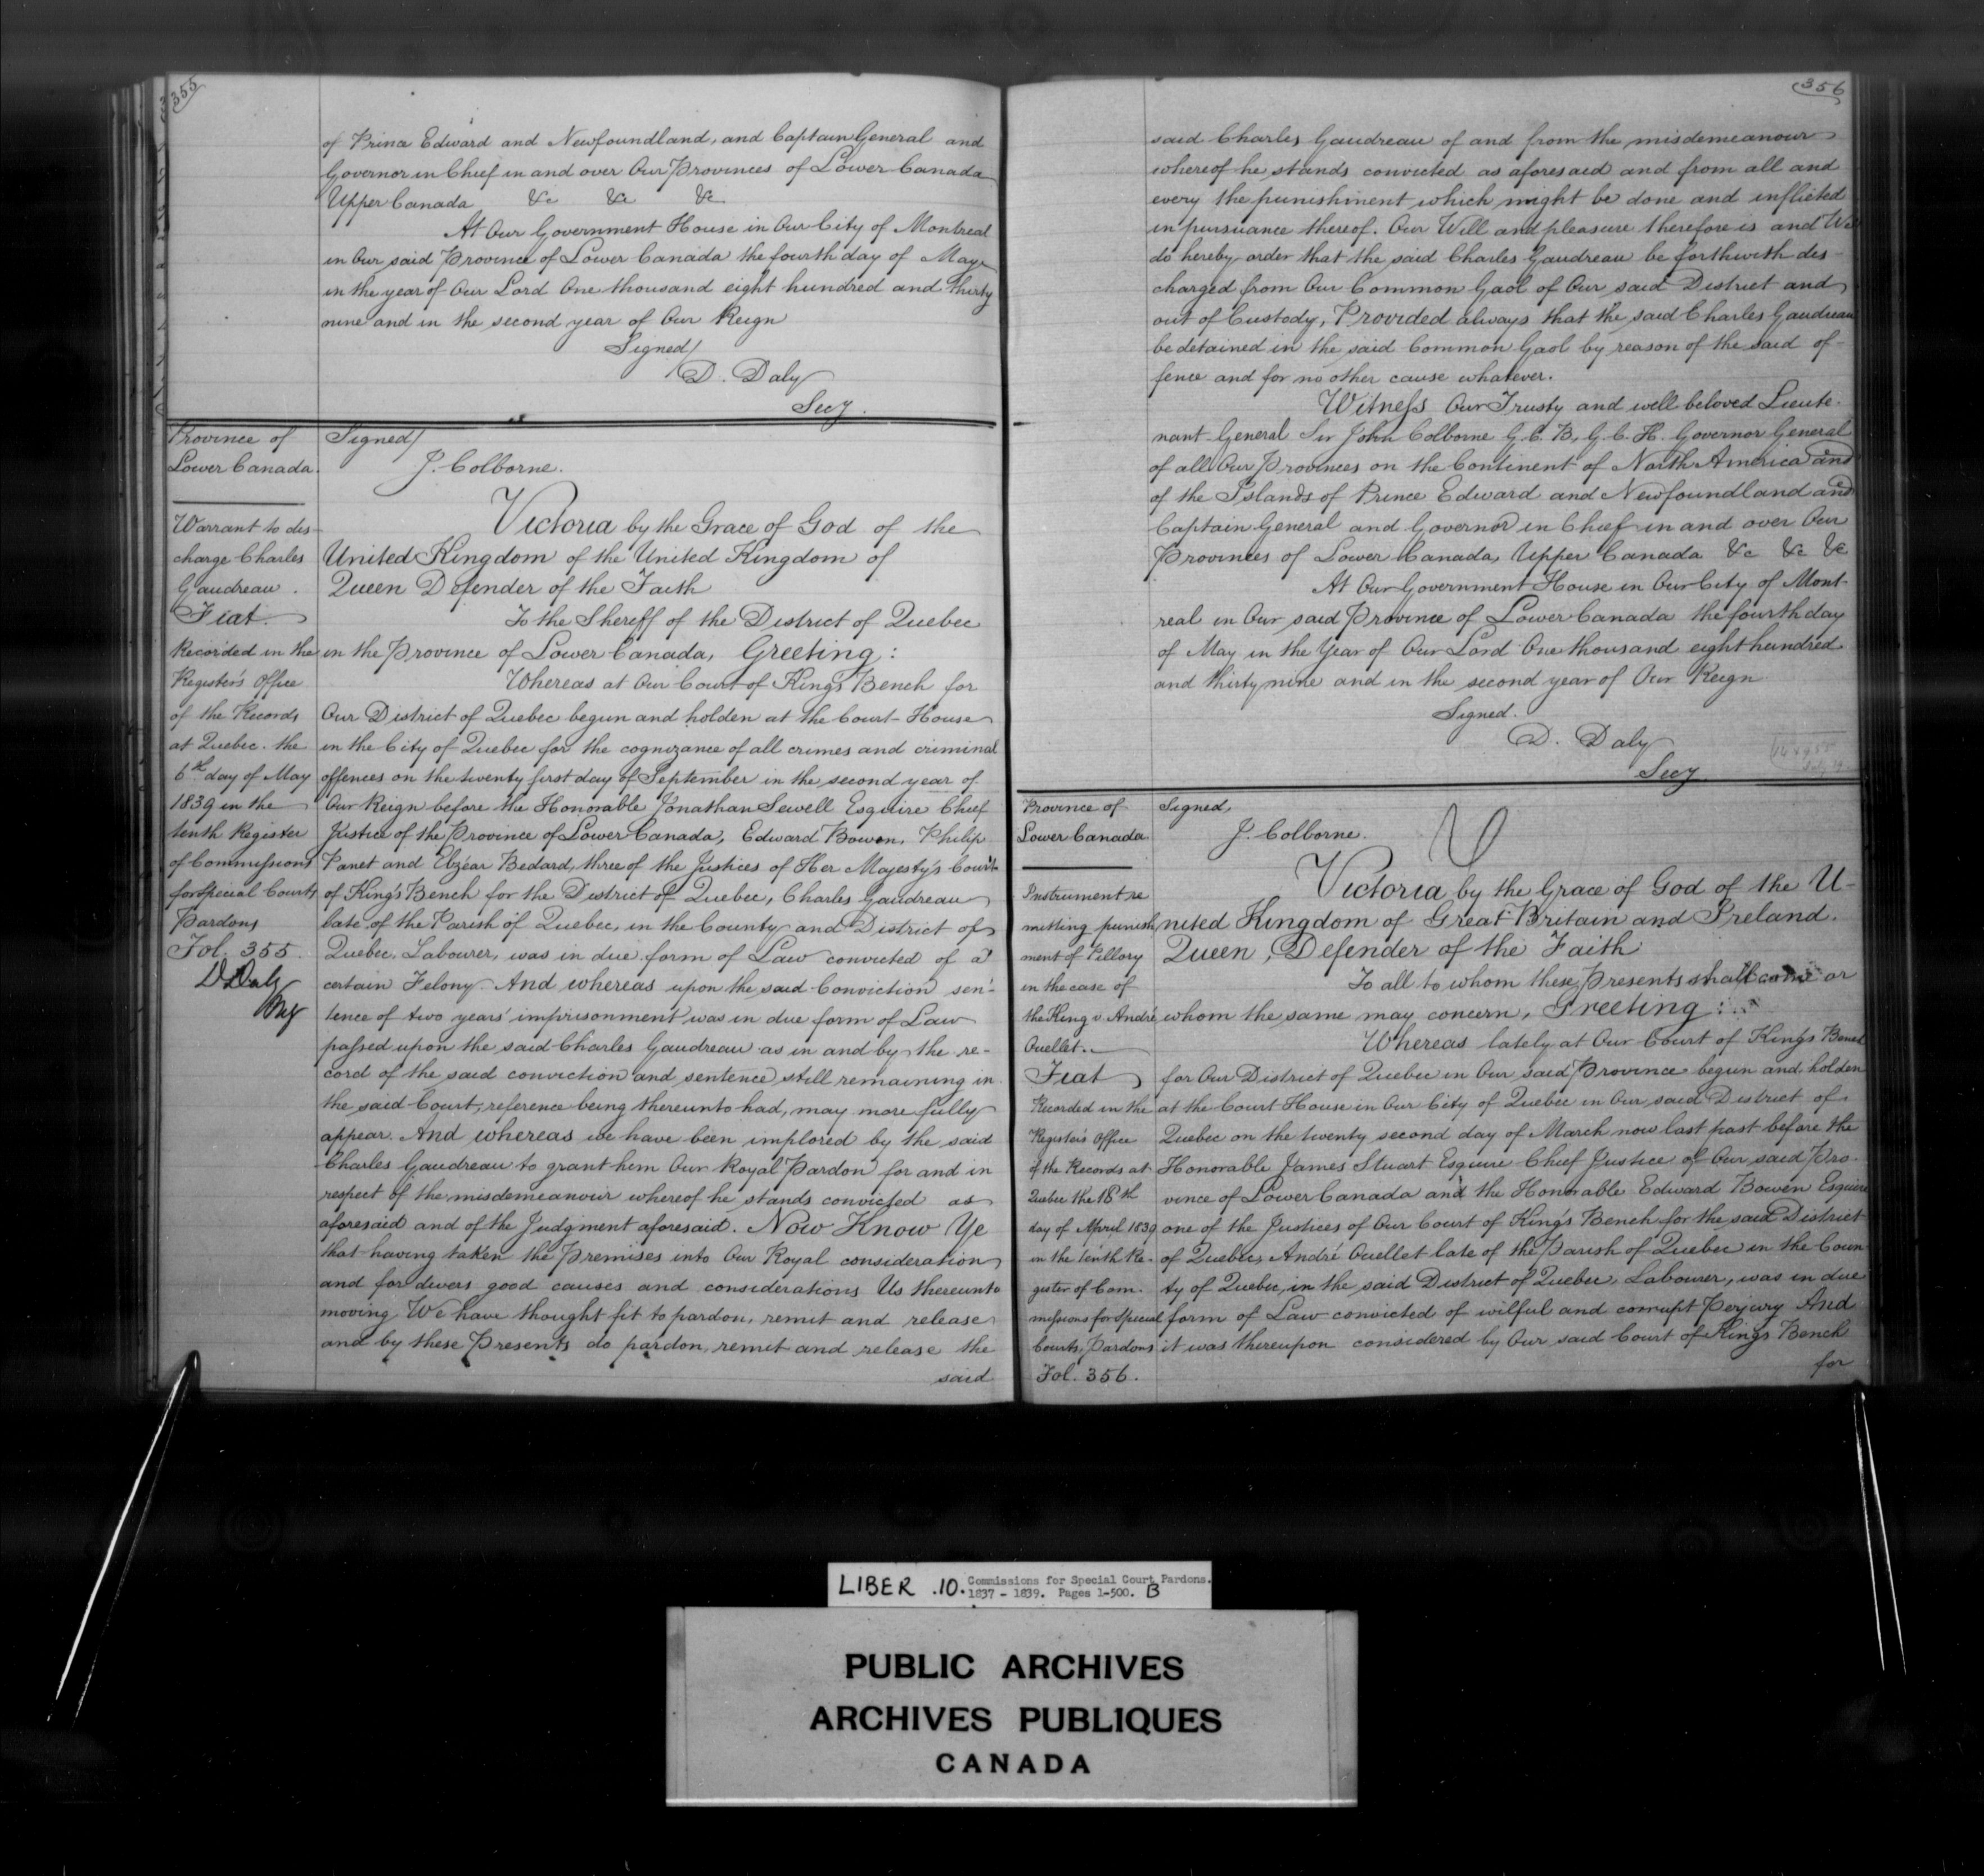 355
of Prince Edward and Newfoundland, and Captain General and
Governor in Chief in and over Our Provinces of Lower Canada
Upper Canada &c &c &c
At Our Government House in Our City of Montreal
in Our said Province of Lower Canada the fourth day of May
in the year of Our Lord One thousand eight hundred and thirty
nine and in the second year of Our Reign
Signed/
D. Daly
Secy.
Province of
Lower Canada.
Warrant to dis-
charge Charles
Gaudreau.
Fiat.
Recorded in the
Register's Office
of the Records
at Quebec. the
6th day of May
1839 in the
tenth Register
of Commissions
for Special Courts
Pardons
Fol. 355.
D Daly
Reg
Signed/
J. Colborne.
Victoria by the Grace of God of the
United Kingdom of the United Kingdom of
Queen Defender of the Faith
To the Sheriff of the District of Quebec
in the Province of Lower Canada, Greeting:
Whereas at Our Court of King's Bench for
Our District of Quebec begun and holden at the Court House
in the City of Quebec for the cognizance of all crimes and criminal
offences on the twenty first day of September in the second year of
Our Reign before the Honorable Jonathan Sewell Esquire Chief
Justice of the Province of Lower Canada, Edward Bowen, Philip
Panet and Elzéar Bedard, three of the Justices of Her Majesty's Court
of King's Bench for the District of Quebec, Charles Gaudreau
late of the Parish of Quebec, in the County and District of
Quebec, Labourer, was in due form of Law convicted of a
certain Felony. And whereas upon the said Conviction sen-
tence of two years' imprisonment was in due form of Law
passed upon the said Charles Gaudreau as in and by the re-
cord of the said conviction and sentence still remaining in
the said Court, reference being thereunto had, may more fully
appear. And whereas we have been implored by the said
Charles Gaudreau to grant him Our Royal Pardon for and in
respect of the misdemeanour whereof he stands convicted as
aforesaid and of the Judgment aforesaid. Now Know Ye
that having taken the Premises into Our Royal consideration
and for divers good causes and considerations Us thereunto
moving We have thought fit to pardon, remit and release
and by these Presents do pardon, remit and release the
said
356
said Charles Gaudreau of and from the misdemeanour
whereof he stands convicted as aforesaid and from all and
every the punishment which might be done and inflicted
in pursuance thereof. Our Will and pleasure therefore is and We
do hereby order that the said Charles Gaudreau be forthwith dis-
charged from Our Common Gaol of Our said District and
out of Custody, Provided always that the said Charles Gaudreau
be detained in the said Common Gaol by reason of the said of-
fence and for no other cause whatever.
Witness Our Trusty and well beloved Lieute-
nant General Sir John Colborne G.C.B, G.C.H. Governor General
of all Our Provinces on the Continent of North America and
of the Islands of Prince Edward and Newfoundland and
Captain General and Governor in Chief in and over Our
Provinces of Lower Canada, Upper Canada &c &c &c
At Our Government House in Our City of Mont-
real in Our said Province of Lower Canada the fourth day
of May in the Year of Our Lord One thousand eight hundred
and thirty nine and in the second year of Our Reign
Signed.
D. Daly
Secy
Province of
Lower Canada
Instrument re
mitting punish
ment of Pillory
in the case of
the King v André
Ouellet.
Fiat
Recorded in the
Register's Office
of the Records at
Quebec the 18th
day of April 1839
in the tenth Re-
gister of Com-
missions for Special
Courts, Pardons
Fol. 356.
Signed,
J. Colborne.
Victoria by the Grace of God of the U-
nited Kingdom of Great Britain and Ireland.
Queen, Defender of the Faith
To all to whom these Presents shall come or
whom the same may concern, Greeting:
Whereas lately at Our Court of King's Bench
for Our District of Quebec in Our said Province begun and holden
at the Court House in Our City of Quebec in Our said District of
Quebec on the twenty second day of March now last past before the
Honorable James Stuart Esquire Chief Justice of Our said Pro-
vince of Lower Canada and the Honorable Edward Bowen Esquire
one of the Justices of Our Court of King's Bench for the said District
of Quebec, André Ouellet late of the Parish of Quebec in the Coun
ty of Quebec, in the said District of Quebec, Labourer, was in due
form of Law convicted of wilful and corrupt Perjury And
it was thereupon considered by Our said Court of King's Bench
for
LIBER .10. Commissions for Special Court Pardons.
1837 - 1839. Pages 1-500. B
PUBLIC ARCHIVES
ARCHIVES PUBLIQUES
CANADA